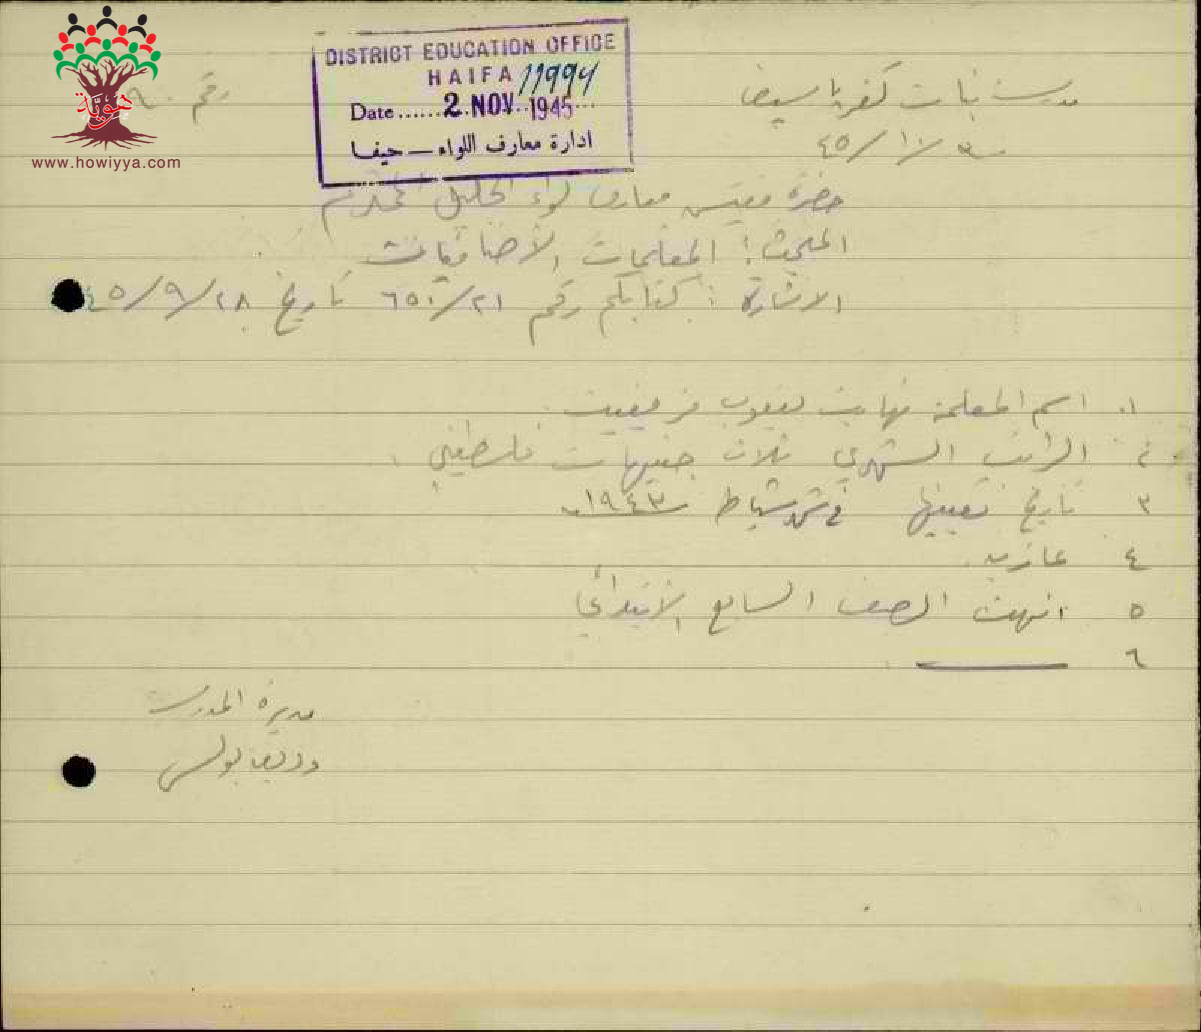 هويّة
www.howiyya.com
DISTRICT EDUCATION OFFICE
HAIFA 11994
Date ...... 2 NOV 1945 ...
ادارة معارف اللواء — حيفا
رقم ٩٠
مدرسة بنات كفر ياسيف
٣٠/١٠/٤٥
حضرة مفتش معارف لواء الجليل المحترم
المبحث: المعلمات الاضافيات
الاشارة: كتابكم رقم ٦٥٠/٢١ تاريخ ٤٥/٩/٢٨
١. اسم المعلمة يعقوب
٢ الراتب الشهري ثلاث جنيهات فلسطيني.
٣ تاريخ تعيينها في شهر شباط سنة ١٩٤٣
٤ عازبه.
٥ انهت الصف السابع الابتدائي
٦ ——— .
مديرة المدرسة
وديعة بولس